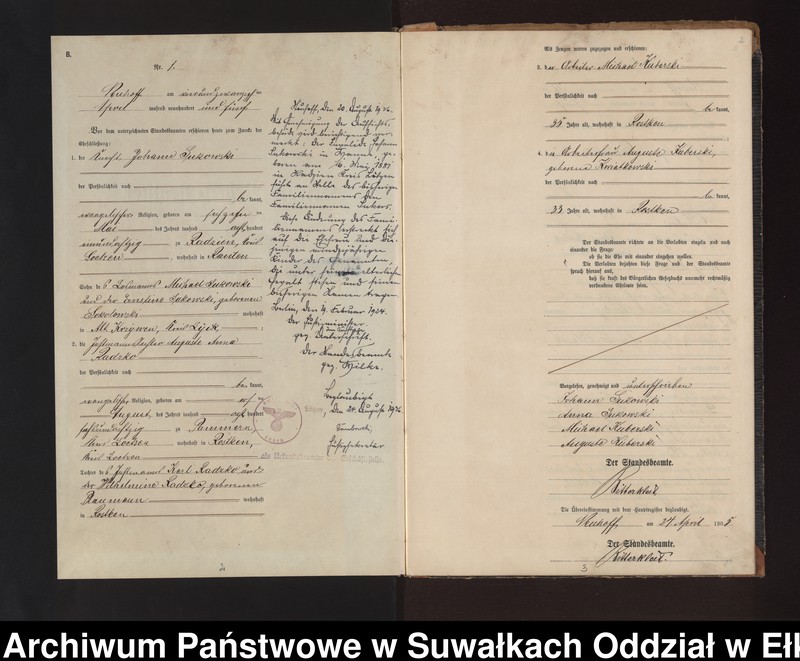 B.
Nr. 1.
Neuhoff am vierundzwanzigsten
April tausend neunhundert und fünf
Vor dem unterzeichneten Standesbeamten erschienen heute zum Zwecke der
Eheschließung:
1. der Knecht Johann Sukowski
der Persönlichkeit nach
be kannt,
evangelischer Religion, geboren am
Mai des Jahres tausend acht hundert
zu Radzien, Kreis
Loetzen, wohnhaft in
Sohn des Losmanns Michael Sukowski
und der Ernstine Sukowski, geborenen
Sokolowski wohnhaft
in Alt Krzywen, Kreis Lyck
2. die Auguste Anna
Radzko
der Persönlichkeit nach
be kannt,
evangelischer Religion, geboren am
August, des Jahres tausend acht hundert
zu Pammern,
Kreis Loetzen wohnhaft in Rostken,
Kreis Loetzen
Tochter des Instmanns Karl Radzko und
der Wilhelmine Radzko, geborenen
Naumann wohnhaft
in Rostken
Neuhoff, den 20. August 1936.
Mit Genehmigung der Aufsichts-
behörde wird berichtigend ver-
merkt: Der Johann
Sukowski in
boren am 16. Mai
in Radzien Kreis Lötzen
führt an Stelle des bisherigen
Familiennamens den
Familiennamen
Diese Änderung des Fami-
liennamens erstreckt sich
auf die Ehefrau und die-
jenigen minderjährigen
Kinder des Genannten,
die unter seiner elterlichen
Gewalt stehen und seinen
bisherigen Namen tragen.
Berlin, den 9. Februar 1924.
Der Justizminister
gez. Unterschrift.
Der Standesbeamte
gez. Wilke.
Beglaubigt
Lötzen, den 28. August 1936
Justizsekretär
als Urkundsbeamter der Geschäftsstelle.
2
Als Zeugen waren zugezogen und erschienen:
3. der Arbeiter Michael Kuberski
der Persönlichkeit nach
be kannt,
35 Jahre alt, wohnhaft in Rostken
4. die Arbeiterfrau Auguste Kuberski,
geborene Kwiatkowski
der Persönlichkeit nach
be kannt,
33 Jahre alt, wohnhaft in Rostken
Der Standesbeamte richtete an die Verlobten einzeln und nach
einander die Frage:
ob sie die Ehe mit einander eingehen wollen.
Die Verlobten bejahten diese Frage und der Standesbeamte
sprach hierauf aus,
daß sie kraft des Bürgerlichen Gesetzbuchs nunmehr rechtmäßig
verbundene Eheleute seien.
Vorgelesen, genehmigt und unterschrieben
Johann Sukowski
Anna Sukowski
Michael Kuberski
Auguste Kuberski
Der Standesbeamte.
Die Übereinstimmung mit dem Hauptregister beglaubigt.
Neuhoff, am 24 April 1905
Der Standesbeamte.
3
Archiwum Państwowe w Suwałkach Oddział w Ełk